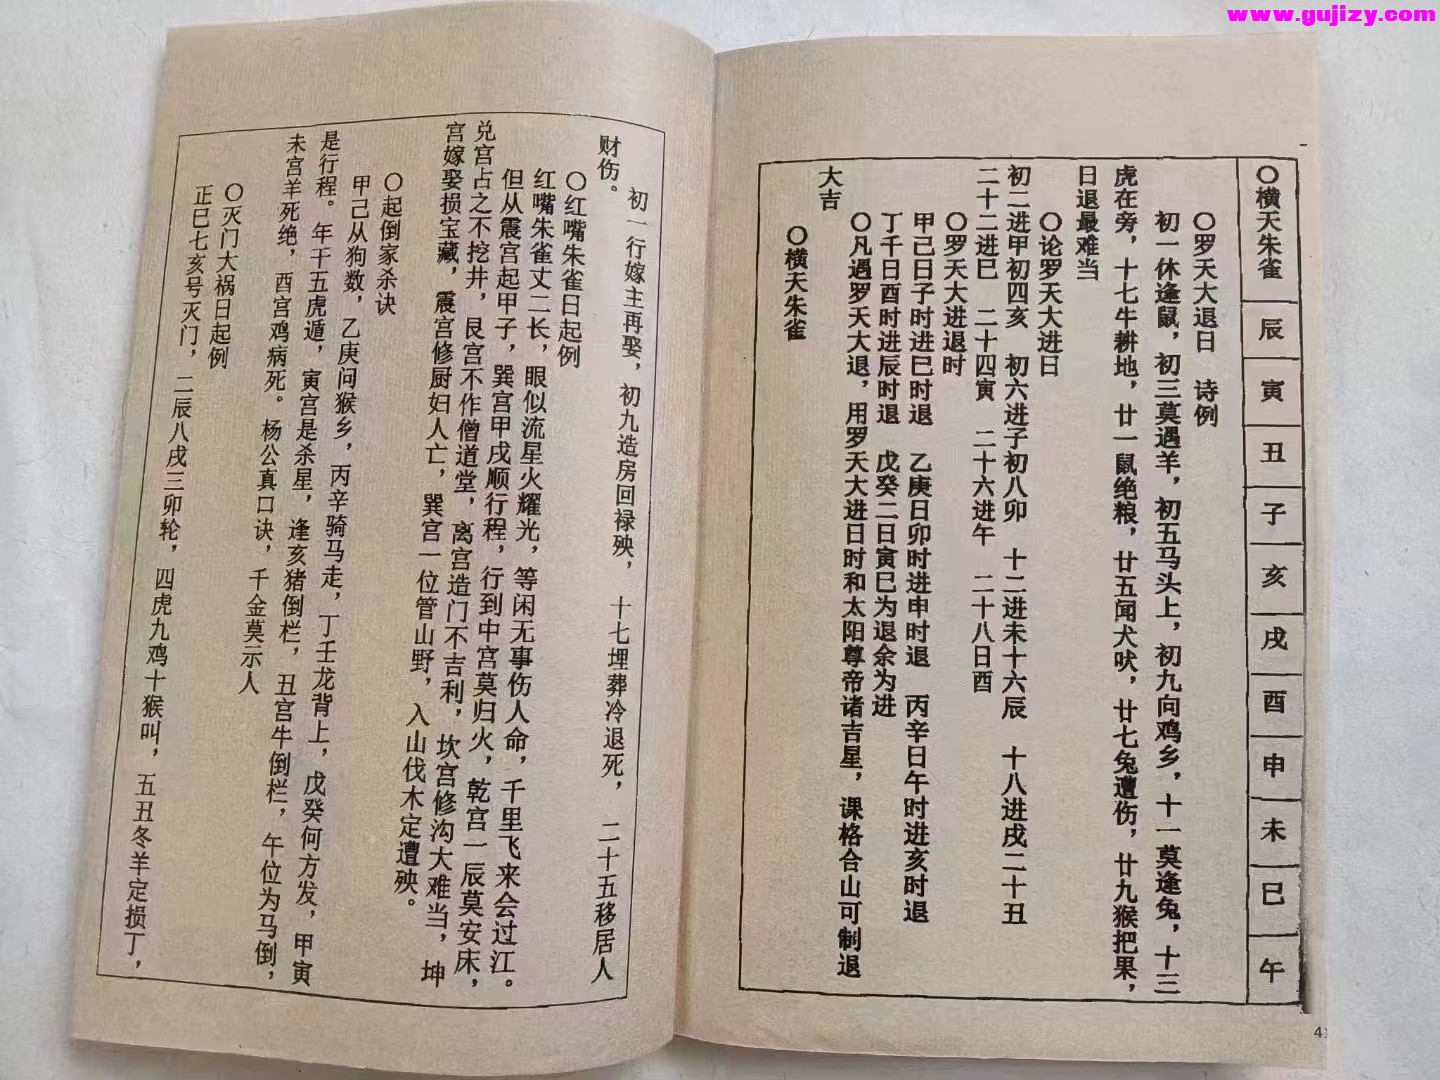 www.gujizy.com
〇横天朱雀 辰 寅 丑 子 亥 戌 酉 申 未 巳 午
〇罗天大退日 诗例
初一休逢鼠，初三莫遇羊，初五马头上，初九向鸡乡，十一莫逢兔，十三
虎在旁，十七牛耕地，廿一鼠绝粮，廿五闻犬吠，廿七兔遭伤，廿九猴把果，
日退最难当
〇论罗天大进日
初二进甲初四亥 初六进子初八卯 十二进未十六辰 十八进戌二十丑
二十二进巳 二十四寅 二十六进午 二十八日酉
〇罗天大进退时
甲己日子时进巳时退 乙庚日卯时进申时退 丙辛日午时进亥时退
丁千日酉时进辰时退 戊癸二日寅巳为退余为进
〇凡遇罗天大退，用罗天大进日时和太阳尊帝诸吉星，课格合山可制退
大吉
〇横天朱雀
初一行嫁主再娶，初九造房回禄殃，十七埋葬冷退死，二十五移居人
财伤。
〇红嘴朱雀日起例
红嘴朱雀丈二长，眼似流星火耀光，等闲无事伤人命，千里飞来会过江。
但从震宫起甲子，巽宫甲戌顺行程，行到中宫莫归火，乾宫一辰莫安床，
兑宫占之不挖井，艮宫不作僧道堂，离宫造门不吉利，坎宫修沟大难当，坤
宫嫁娶损宝藏，震宫修厨妇人亡，巽宫一位管山野，入山伐木定遭殃。
〇起倒家杀诀
甲己从狗数，乙庚问猴乡，丙辛骑马走，丁壬龙背上，戊癸何方发，甲寅
是行程。年干五虎遁，寅宫是杀星，逢亥猪倒栏，丑宫牛倒栏，午位为马倒，
未宫羊死绝，酉宫鸡病死。杨公真口诀，千金莫示人
〇灭门大祸日起例
正巳七亥号灭门，二辰八戌三卯轮，四虎九鸡十猴叫，五丑冬羊定损丁，